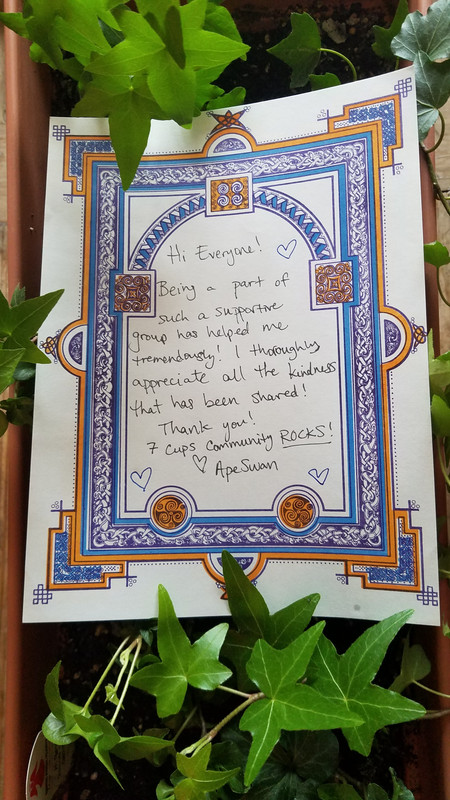 Hi Everyone!
Being a part of
such a supportive
group has helped me
tremendously! I thoroughly
appreciate all the kindness
that has been shared!
Thank you!
7 Cups Community ROCKS!
ApeSwan